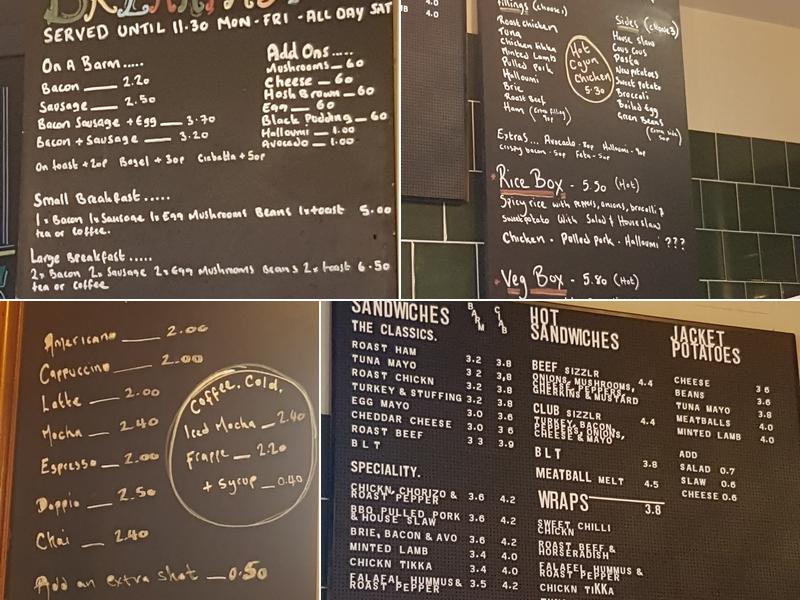 BREAKFAST
SERVED UNTIL 11.30 MON-FRI - ALL DAY SAT
On A Barm.....
Bacon 2.20
Sausage 2.50
Bacon Sausage + Egg 3.70
Bacon + Sausage 3.20
On toast +20p Bagel +30p Ciabatta +50p
Add Ons.....
Mushrooms 60
Cheese 60
Hash Brown 60
Egg 60
Black Pudding 60
Halloumi 1.00
Avocado 1.00
Small Breakfast.....
1x Bacon 1x Sausage 1x Egg Mushrooms Beans 1x toast 5.00
tea or coffee.
Large Breakfast.....
2x Bacon 2x Sausage 2x Egg Mushrooms Beans 2x toast 6.50
tea or coffee
4.0
UB 4.0
fillings (choose 1)
Roast Chicken
Tuna
Chicken tikka
Minted Lamb
Pulled Pork
Halloumi
Brie
Roast Beef
Ham (Extra filling)
Hot
Cajun
Chicken
5.30
Sides (choose 3)
House slaw
Cous Cous
Pasta
New potatoes
Sweet potato
Broccoli
Boiled Egg
Green Beans
(Extra side)
50p
Extras... Avocado - 80p Halloumi - 90p
Crispy bacon - 50p Feta - 50p
* Rice Box - 5.50 (Hot)
Spicy rice with peppers, onions, brocolli &
sweetpotato with Salad & House slaw
Chicken . Pulled pork . Halloumi ???
* Veg Box - 5.80 (Hot)
Americano 2.00
Cappuccino 2.00
Latte 2.00
Mocha 2.40
Espresso 2.00
Doppio 2.50
Chai 2.40
Add an extra shot 0.50
Coffee. Cold.
Iced Mocha 2.40
Frappe 2.20
+ Syrup 0.40
SANDWICHES BARM CIAB
THE CLASSICS.
ROAST HAM 3.2 3.8
TUNA MAYO 3 2 3,8
ROAST CHICKN 3.2 3.8
TURKEY & STUFFING 3.2 3.8
EGG MAYO 3.0 3.6
CHEDDAR CHEESE 3.0 3 6
ROAST BEEF 3 3 3.9
B L T
SPECIALITY.
CHICKN, CHORIZO &
ROAST PEPPER 3.6 4.2
BBQ PULLED PORK
& HOUSE SLAW 3.6 4.2
BRIE, BACON & AVO 3.6 4.2
MINTED LAMB 3.4 4.0
CHICKN TIKKA 3.4 4.0
FALAFAL HUMMUS &
ROAST PEPPER 3.5 4.2
HOT
SANDWICHES
BEEF SIZZLR
ONIONS, MUSHROOMS, 4.4
CHEESE, PEPPERS,
GHERKINS & MUSTARD
CLUB SIZZLR 4.4
TURKEY, BACON,
PEPPERS, ONIONS,
CHEESE & MAYO
B L T 3.8
MEATBALL MELT 4.5
WRAPS 3.8
SWEET CHILLI
CHICKN
ROAST BEEF &
HORSERADISH
FALAFEL HUMMUS &
ROAST PEPPER
CHICKN TIKKA
JACKET
POTATOES
CHEESE 3 6
BEANS 3.6
TUNA MAYO 3.8
MEATBALLS 4.0
MINTED LAMB 4.0
ADD
SALAD 0.7
SLAW 0.6
CHEESE 0.6